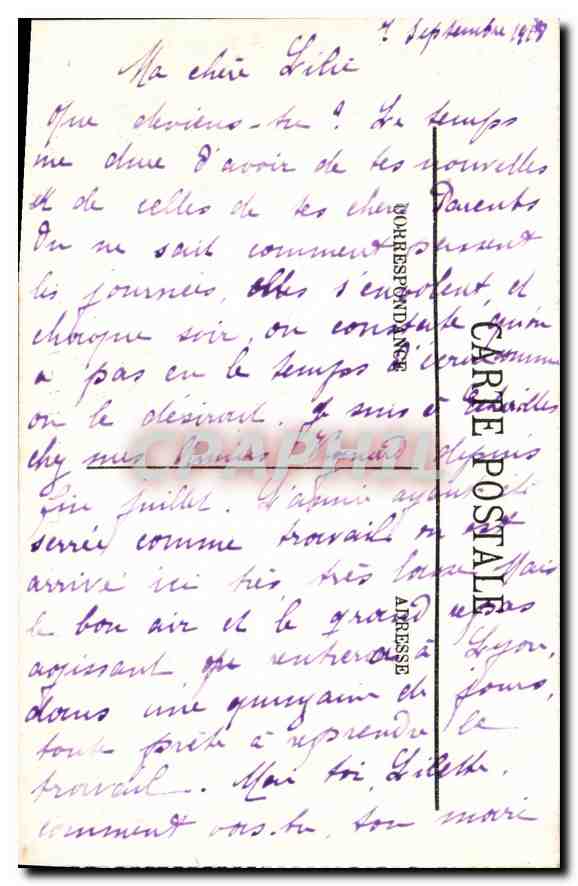 7 Septembre 1918
Ma chère Lilie
Que deviens-tu ? Le temps
me dure d'avoir de tes nouvelles
et de celles de tes chers Parents
On ne sait comment passent
les journées, elles s'envolent et
chaque soir, on constate qu'on
a pas eu le temps d'écrire comme
on le désirait. Je suis à
chez mes depuis
fin juillet. L'année ayant été
serrée comme travail on est
arrivé ici très très lasse. Mais
le bon air et le grand repas
agissant, on rentrera à Lyon,
dans une quinzaine de jours,
toute prête à reprendre le
travail. Mais toi, Lilette,
comment vas-tu, ton mari
CORRESPONDANCE
CARTE POSTALE
ADRESSE
CARTEPHILA